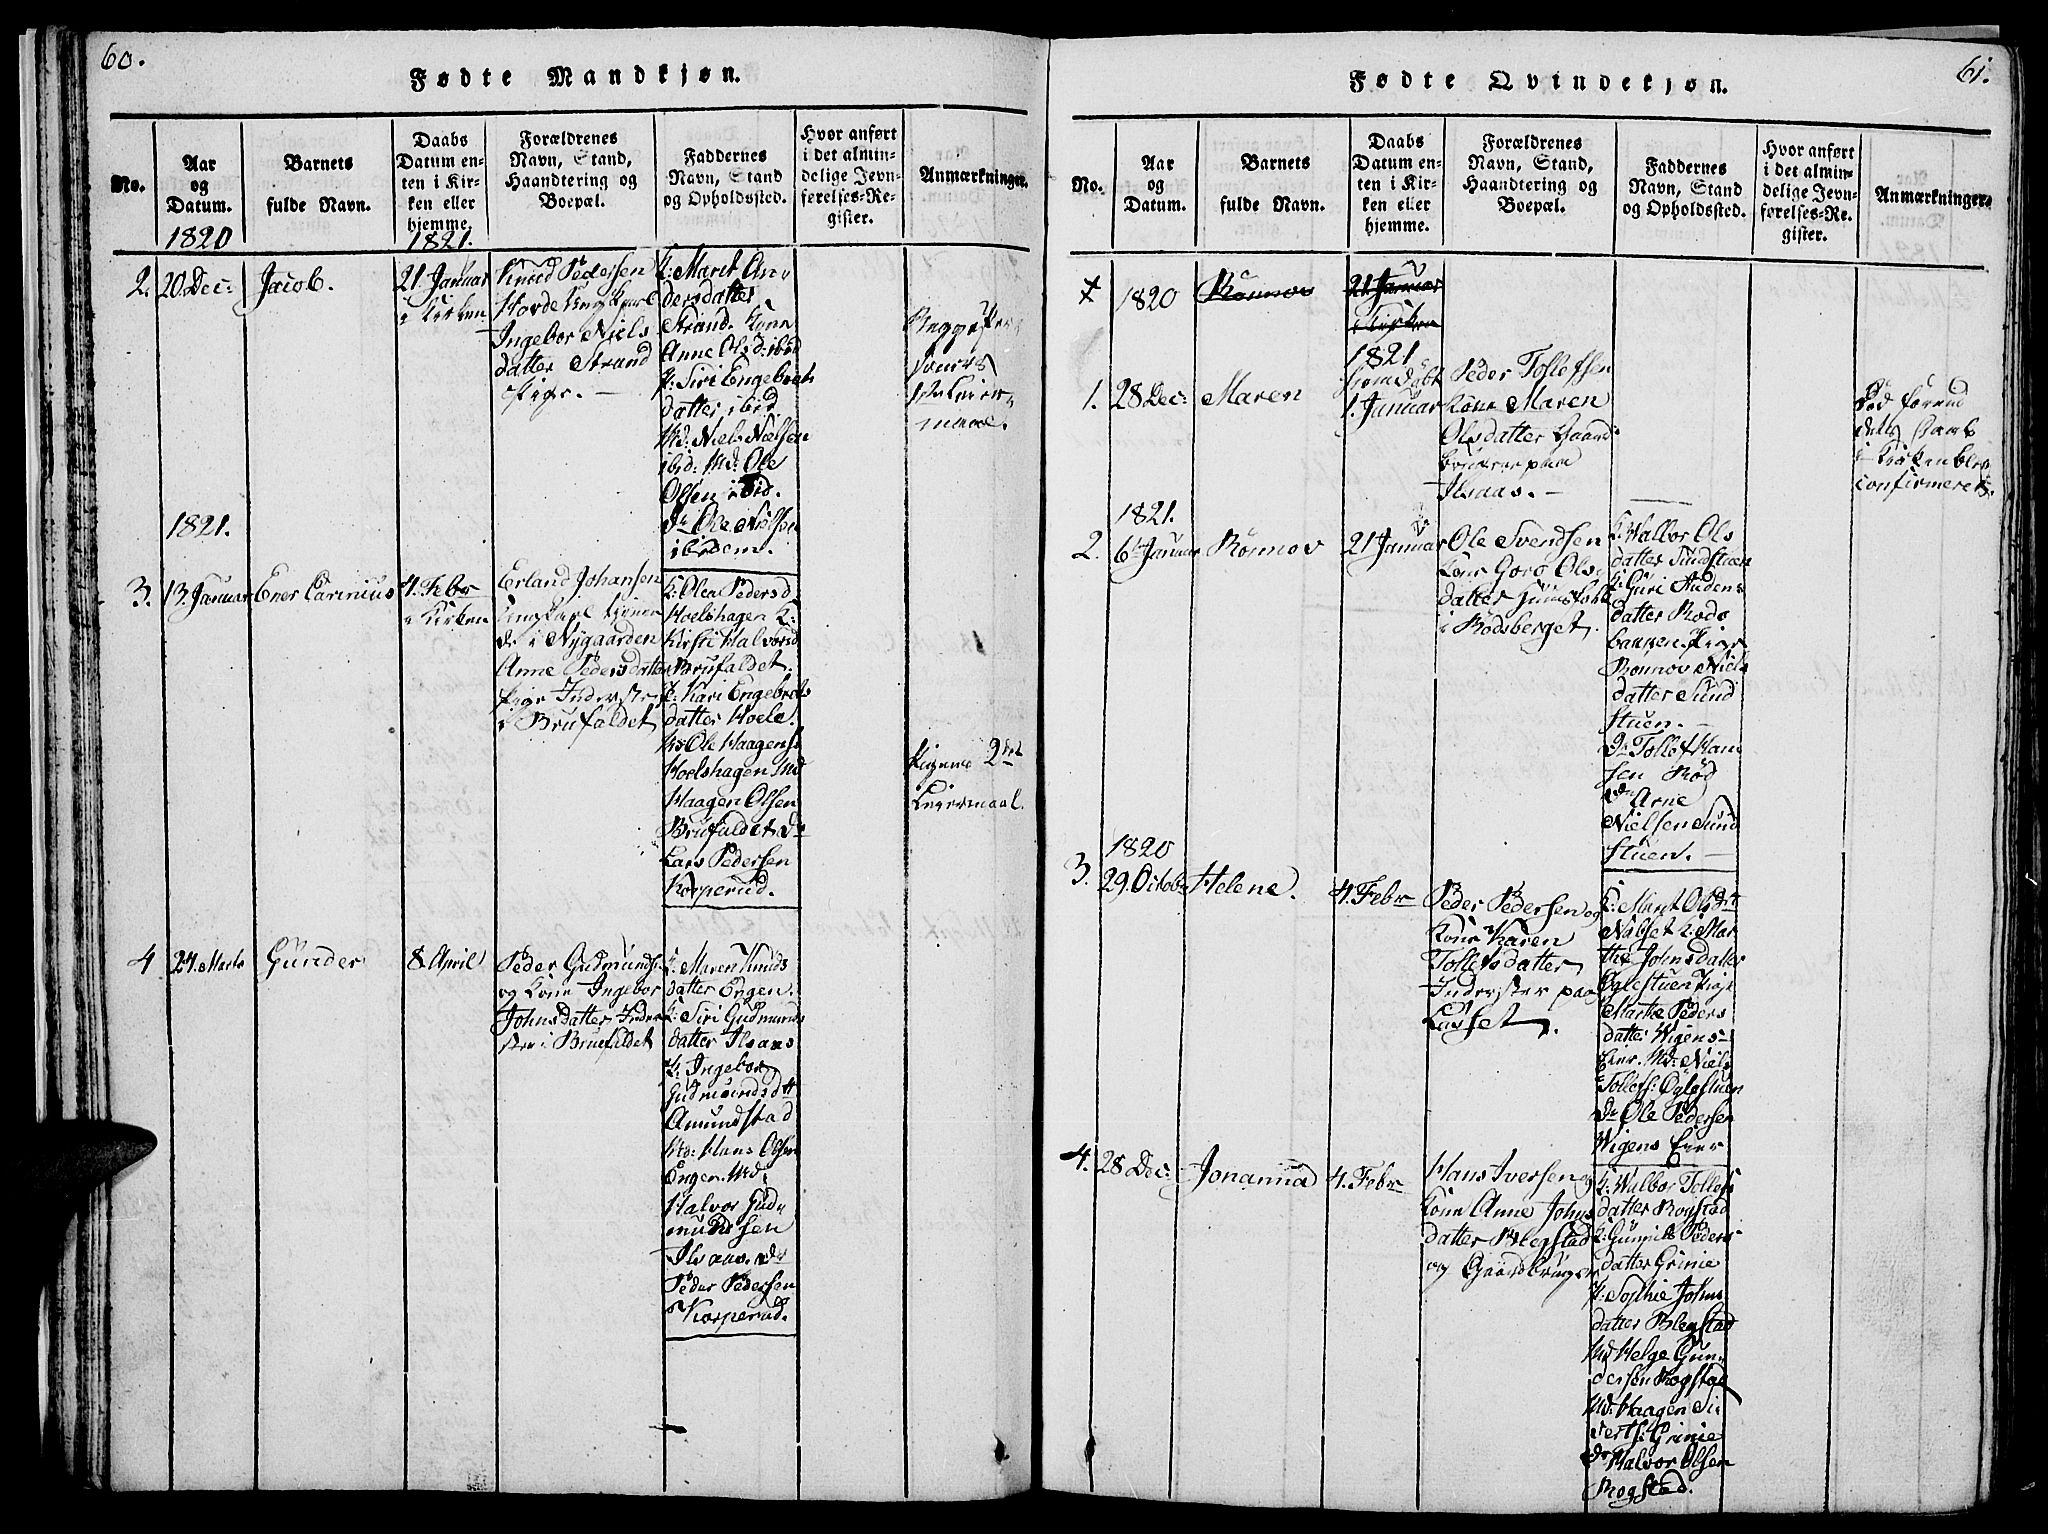 60.
Fødte Mandkjøn.
No.
Aar
og
Datum.
Barnets
fulde Navn.
Daabs
Datum en-
ten i Kir-
ken eller
hjemme.
Forældrenes
Navn, Stand,
Haandtering og
Boepæl.
Faddernes
Navn, Stand
og Opholdssted.
Hvor anført
i det almin-
delige Jevn-
førelses-Re-
gister.
Anmærkninger.
1820
1821.
2.
20 Dec:
Jacob.
21 Januar
i Kirken
Knud Pedersen
Ungkarl
Ingebor Niels
datter Strand
Pige. —
K: Marit An-
dersdatter
Strand. Kone
Anne Olsd: ibid
P: Siri Engebrets
datter ibid.
Md: Niels Nielsen
ibid: Md: Ole
Olsen ibid.
Dr Ole Nielsen
ibidem.
Begge
1821.
3.
13 Januar
Ener Carinius
4. Febr
i Kirken
Erland Johansen
Ungkarl tjenen
de i Nygaarden
Anne Pedersdatter
Pige Inderste
i Brufaldet
K: Olea Pedersd
Hoelshagen K:
Kirsti Halvorsd
Brufaldet.
P: Kari Engebrets
datter Hoele.
Md Ole Haagens
Hoelshagen Md
Haagen Olsen
Brufaldet Dr
Lars Pedersen
Korperud.
Pigens 2det
Leiermaal.
4
24. Marts
Gunder
8 April
Peder Gudmunds.
og Kone Ingebor
Johnsdatter Inder
ste i Bruefaldet
K: Maren Knuds
datter Engen.
K: Siri Gudmunds
datter Ilsaas
P: Ingebor
Gudmundsdtt
Amundstad
Md: Hans Olsen
Engen. Md:
Halvor Gud-
mundsen
Ilsaas. Dr
Peder Pedersen
Korperud.
61.
Fødte Qvindekjøn.
No.
Aar
og
Datum.
Barnets
fulde Navn.
Daabs
Datum en-
ten i Kir-
ken eller
hjemme.
Forældrenes
Navn, Stand,
Haandtering og
Boepæl.
Faddernes
Navn, Stand
og Opholdssted.
Hvor anført
i det almin-
delige Jevn-
førelses-Re-
gister.
Anmærkninger.
1820
Rönnov
21 Januar
i Kirken
1821
1.
28 Dec:
Maren
hjemdöbt
1. Januar
Peder Tollefsen
Kone Maren
Olsdatter Gaard-
bruger paa
Ilsaas. —
Död förend
dets Daab
i Kirken blev
confirmeret.
1821.
2.
6te Januar
Rönnov
21 Januar
Ole Svendsen
Kone Goro Ols-
datter Huusfolk
i Rödsberget
K: Walbor Ols
datter Sundstuen
K: Guri Audens
datter Röds
bakken. Pige
Ronnov Niels
datter Sund
stuen. —
Dr Tollef Han
sen Röd
Dr Arne
Nielsen Sund
stuen. —
1820
3.
29. Octobr
Helene.
4. Febr
Peder Pedersen og
Kone Karen
Tollefsdatter
Inderster paa
Lasset.
K: Maret Olsdtt
Nabset K: Mar
the Johnsdatter
Oglestuen Pige
Marthe Peders
datter Wigens-
Eier. Md: Niels
Tollefs: Oglestuen
Dr Ole Pedersen
Wigens Eier
4.
28 Dec:
Johanna
4. Febr
Hans Iversen og
Kone Anne Johns
datter Blegstad
og Gaardbruger
K: Walbor Tollefs
datter Rogstad
K: Gunnild Peders
datter Grinie
P: Sophie Johns
datter Blegstad
Md Helge Gun-
dersen Rogstad
Md: Haagen Si
verts: Grinie
Dr Halvor Olsen
Rogstad.